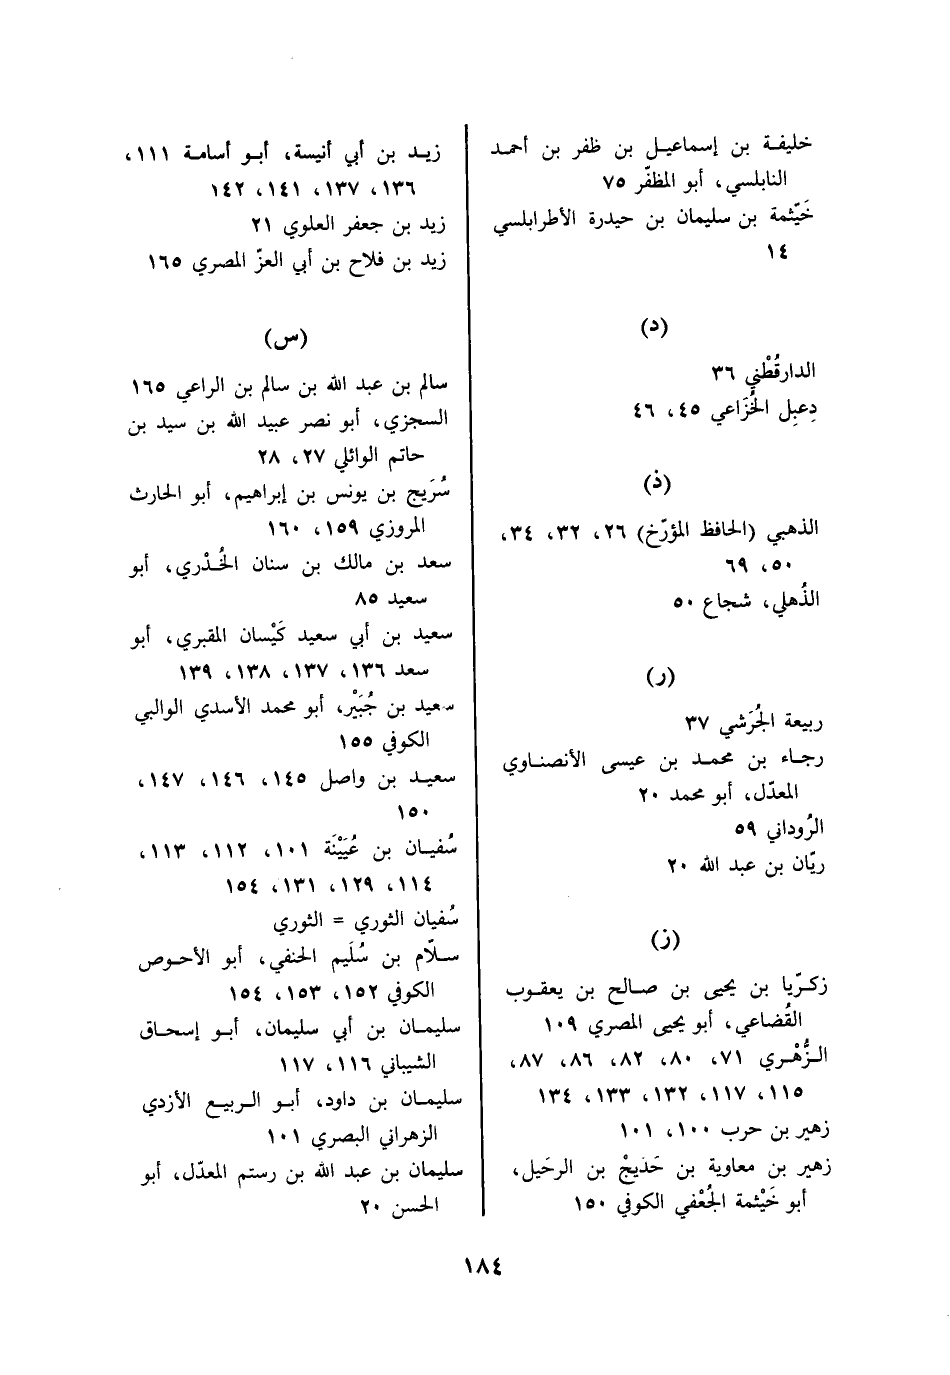 خليفـة بن إسماعيـل بن ظفر بن أحمـد
النابلسي، أبو المظفّر ٧٥
خَيّثمة بن سليمان بن حيدرة الأطرابلسي
١٤
(د)
الدارقُطْني ٣٦
دِعبِل الخُزَاعي ٤٥، ٤٦
(ذ)
الذهبي (الحافظ المؤرّخ) ٢٦، ٣٢، ٣٤،
٥٠، ٦٩
الذُهلي، شجاع ٥٠
(ر)
ربيعة الجُرَشي ٣٧
رجـاء بن محمـد بن عيسى الأنصنـاوي
المعدّل، أبو محمد ٢٠
الرُوداني ٥٩
ريّان بن عبد الله ٢٠
(ز)
زكـرّيا بن يحيى بن صـالح بن يعقـوب
القُضاعي، أبو يحيى المصري ١٠٩
الـزُّهْـري ٧١، ٨٠، ٨٢، ٨٦، ٨٧،
١١٥، ١١٧، ١٣٢، ١٣٣، ١٣٤
زهير بن حرب ١٠٠، ١٠١
زهير بن معاوية بن حَديجْ بن الرحَيل،
أبو خَيْثمة الجُعْفي الكوفي ١٥٠
زيـد بن أبي أنيسة، أبـو أسامـة ١١١،
١٣٦، ١٣٧، ١٤١، ١٤٢
زيد بن جعفر العلوي ٢١
زيد بن فلاح بن أبي العزّ المصري ١٦٥
(س)
سالم بن عبد الله بن سالم بن الراعي ١٦٥
السجزي، أبو نصر عبيد الله بن سيد بن
حاتم الوائلي ٢٧، ٢٨
سُرَيج بن يونس بن إبراهيم، أبو الحارث
المروزي ١٥٩، ١٦٠
سعد بن مالك بن سنان الخُـدْري، أبو
سعيد ٨٥
سعيد بن أبي سعيد كَيْسان المقبري، أبو
سعد ١٣٦، ١٣٧، ١٣٨، ١٣٩
سعيد بن جُبَيْر، أبو محمد الأسدي الوالبي
الكوفي ١٥٥
سعيـد بن واصل ١٤٥، ١٤٦، ١٤٧،
١٥٠
سُفيـان بن عُيَيْنَة ١٠١، ١١٢، ١١٣،
١١٤، ١٢٩، ١٣١، ١٥٤
سُفيان الثوري = الثوري
سـلّام بن سُلَيم الحنفي، أبو الأحـوص
الكوفي ١٥٢، ١٥٣، ١٥٤
سليمـان بن أبي سليمان، أبـو إسحـاق
الشيباني ١١٦، ١١٧
سليمـان بن داود، أبـو الـربيـع الأزدي
الزهراني البصري ١٠١
سليمان بن عبد الله بن رستم المعدّل، أبو
الحسن ٢٠
١٨٤